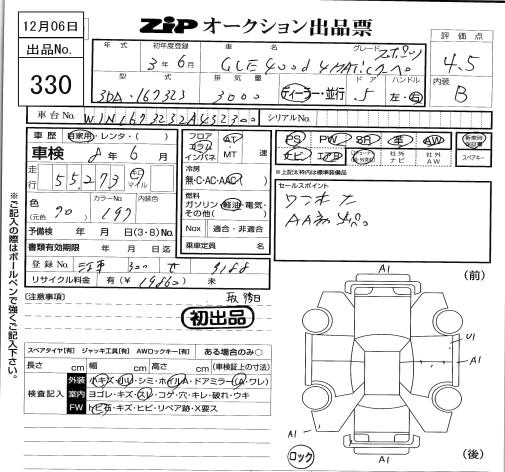 12月06日
ZIP オークション出品票
出品No.
330
年式 初年度登録 車名 グレード
3年6月 GLE400d 4MATIC スポーツ
評価点
4.5
型式 排気量 ドア ハンドル
3DA-167323 3000 ディーラー・並行 5 左・右
内装
B
車台No. W1N1673232A432300 シリアルNo.
車歴 自家用・レンタ・( )
車検 8年6月
走行 55,273 キロ マイル
色 (元色) 90 カラーNo. 197 内装色
予備検 年 月 日(3・8)No.
書類有効期限 年 月 日迄
登録No. 300 せ 9188
リサイクル料金 有(¥ 19860) 未
フロア コラム インパネ AT・MT 速
冷房
無・C・AC・AAC( )
燃料
ガソリン・軽油・電気・その他( )
Nox 適合・非適合
乗車定員 名
PS PW SR 革 AW 新車時保証書
ナビ エアB 社外ナビ 社外AW スペアキー
※上記太枠内は標準装備品
セールスポイント
ワンオーナー
※ご記入の際はボールペンで強くご記入下さい。
[注意事項]
初出品
スペアタイヤ[有] ジャッキ工具[有] AWロックキー[有] ある場合のみ○
長さ cm 幅 cm 高さ cm (車検証上の寸法)
検査記入
外装 小キズ・小U・シミ・ホイルA・ドアミラー(A・ワレ)
室内 ヨゴレ・キズ・スレ・コゲ・穴・キレ・破れ・ウキ
FW トビ石・キズ・ヒビ・リペア跡・X要ス
A1
(前)
U1
A1
A1
A1
(後)
ロック